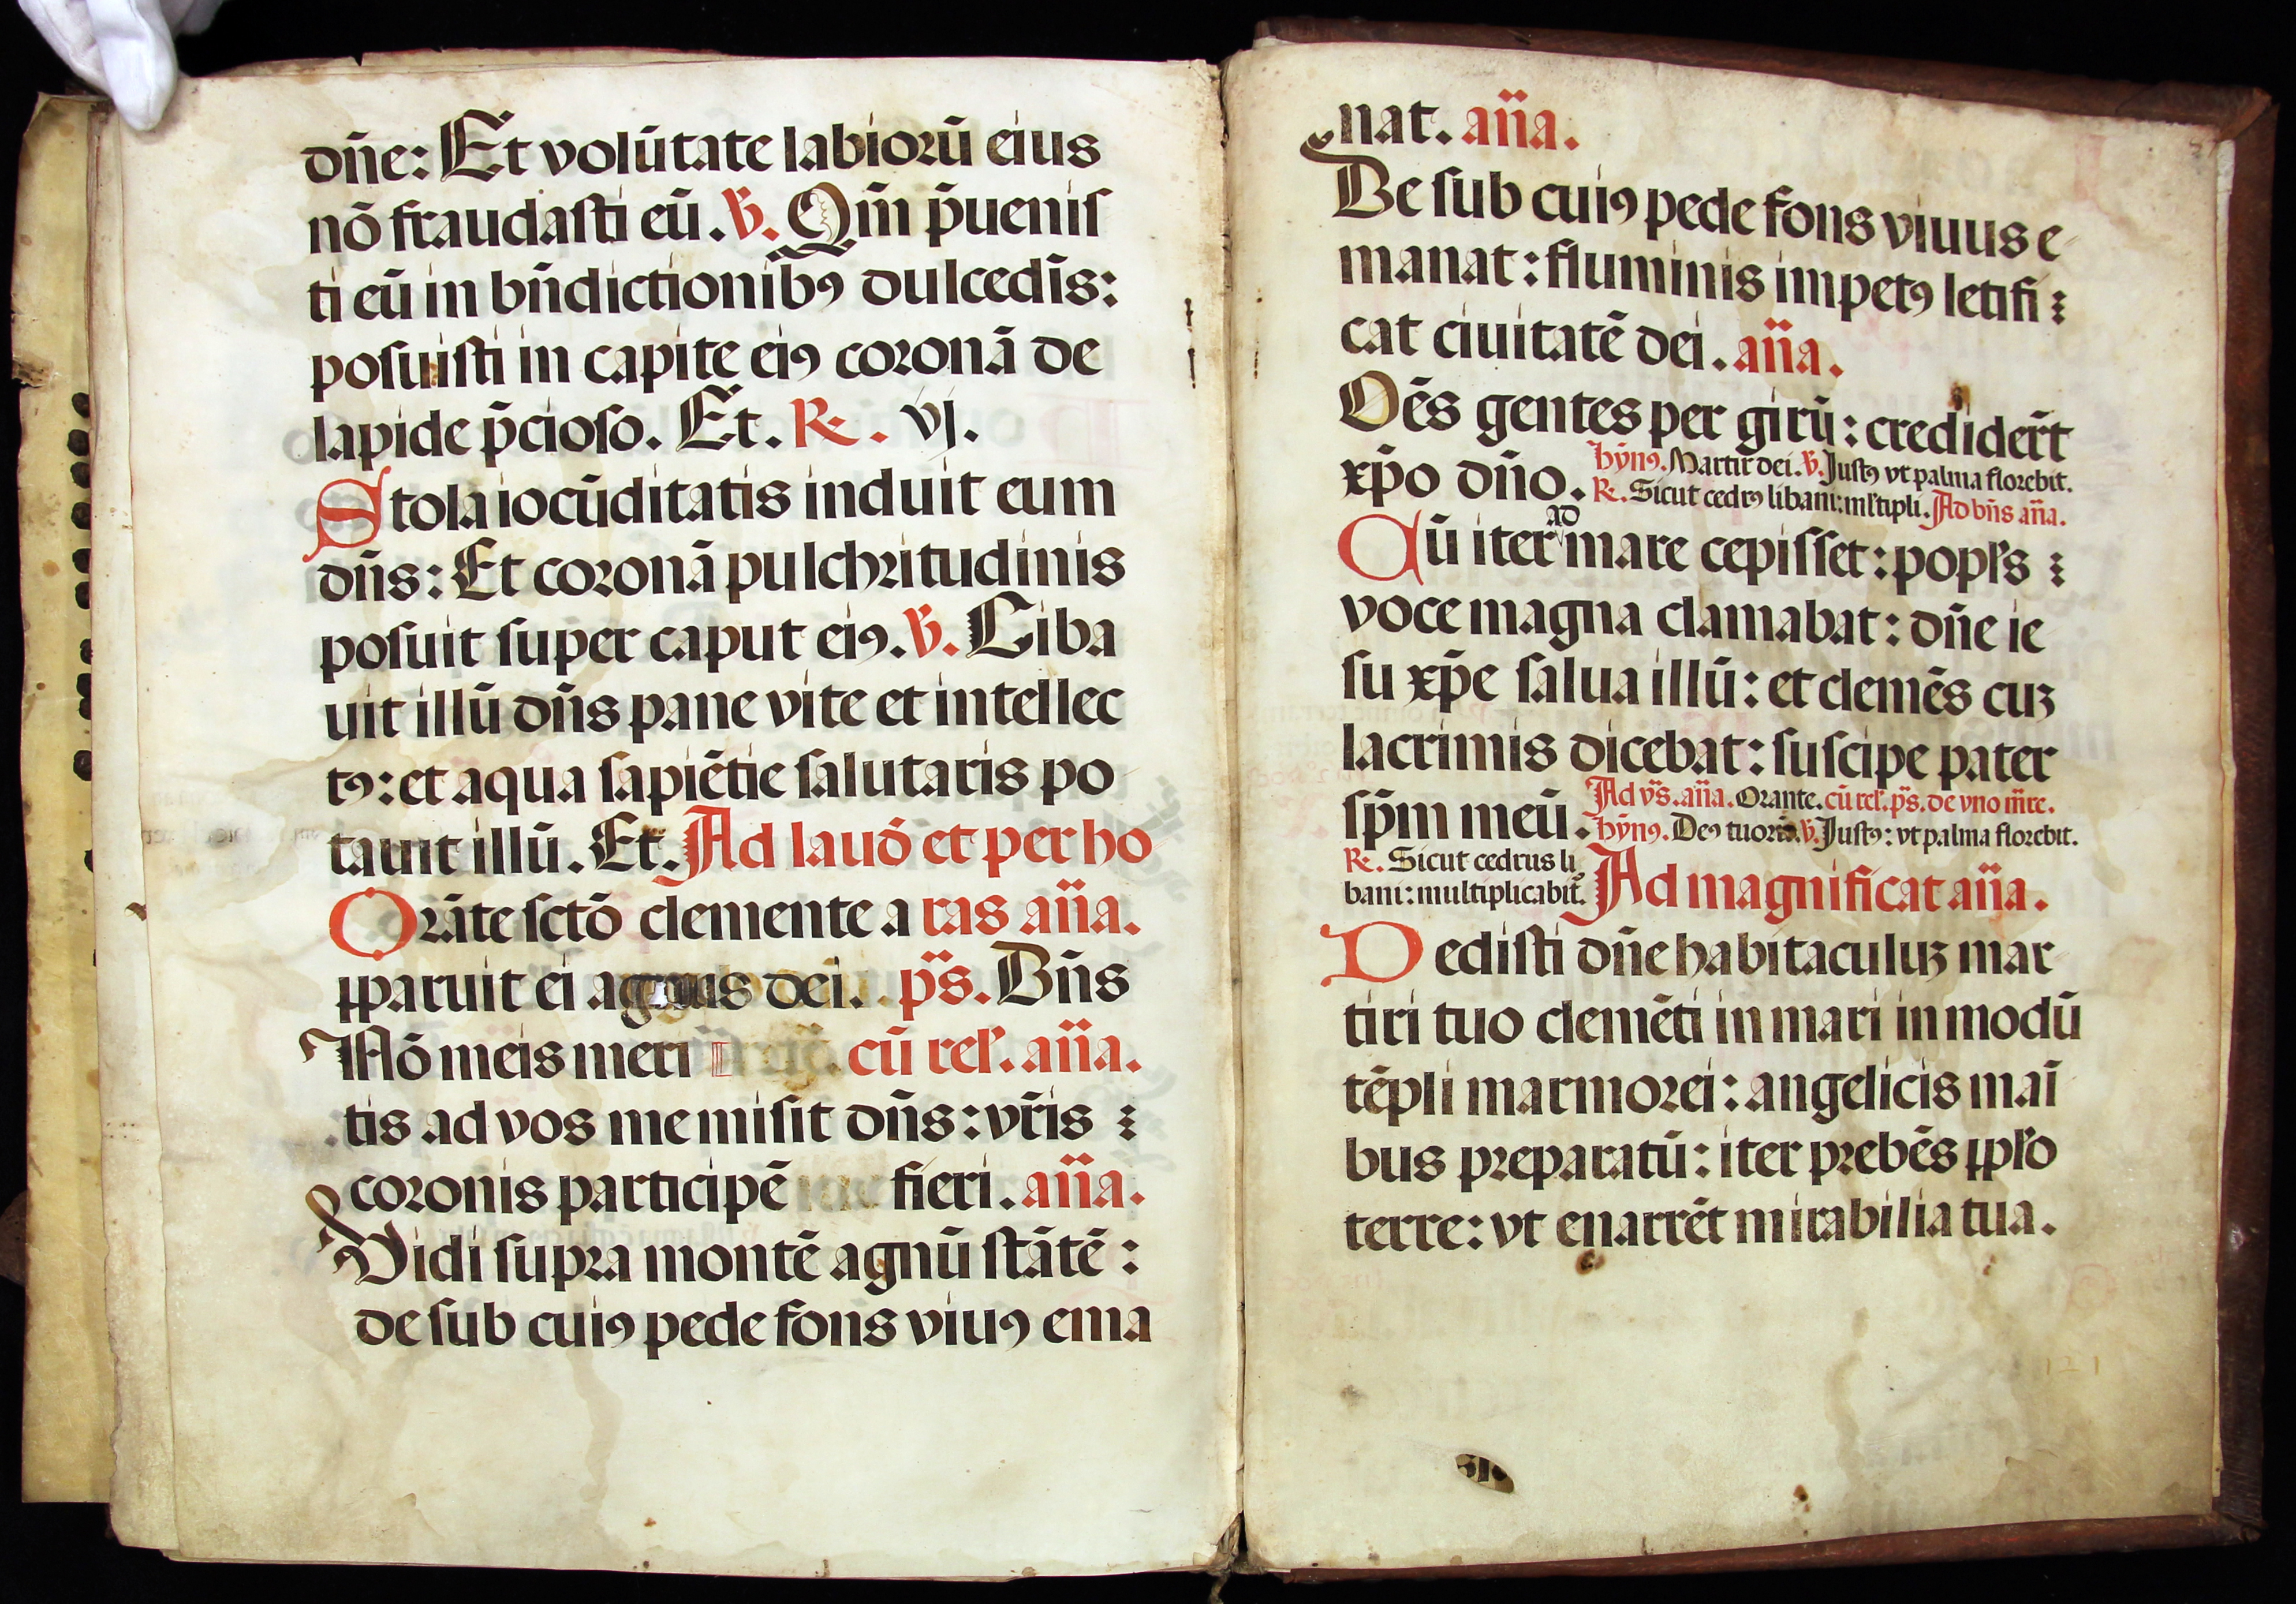 dn̄e: Et volūtate labiorū eius
nō fraudasti eū. ℣. Qm̄ p̄uenis
ti eū in bn̄dictionibꝰ dulcedīs:
posuisti in capite eiꝰ coronā de
lapide p̄cioso. Et. ℟. vj.
Stola iocūditatis induit eum
dn̄s: Et coronā pulchritudinis
posuit super caput eiꝰ. ℣. Ciba
uit illū dn̄s pane vite et intellec
tꝰ: et aqua sapiētie salutaris po
tauit illū. Et. Ad laud̄ et per ho
Orāte sctō clemente a ras an̄a.
pparuit ei agnus dei. ps̄. Dn̄s
Nō meis meri cū rel̄. an̄a.
tis ad vos me misit dn̄s: vr̄is
coronis participē fieri. an̄a.
Vidi supra montē agnū stātē:
de sub cuiꝰ pede fons viuꝰ ema
nat. an̄a.
De sub cuiꝰ pede fons viuus e
manat: fluminis impetꝰ letifi
cat ciuitatē dei. an̄a.
Oēs gentes per girū: credider̄t
xp̄o dn̄o. hȳnꝰ. Martir dei. ℣. Justꝰ vt palma florebit.
℟. Sicut cedrꝰ libani: ml̄tipli. Ad bn̄s an̄a.
Cū iter ad mare cepisset: popl̄s
voce magna clamabat: dn̄e ie
su xp̄e salua illū: et clemēs cuꝫ
lacrimis dicebat: suscipe pater
sp̄m meū. Ad vs̄. an̄a. Orante. cū rel̄. ps̄. de vno mr̄e.
hȳnꝰ. Deꝰ tuorū. ℣. Justꝰ: vt palma florebit.
℟. Sicut cedrus li
bani: multiplicabit̄. Ad magnificat an̄a.
Dedisti dn̄e habitaculuꝫ mar
tiri tuo clemēti in mari in modū
tēpli marmorei: angelicis maī
bus preparatū: iter prebēs ppl̄o
terre: vt enarrēt mirabilia tua.
121